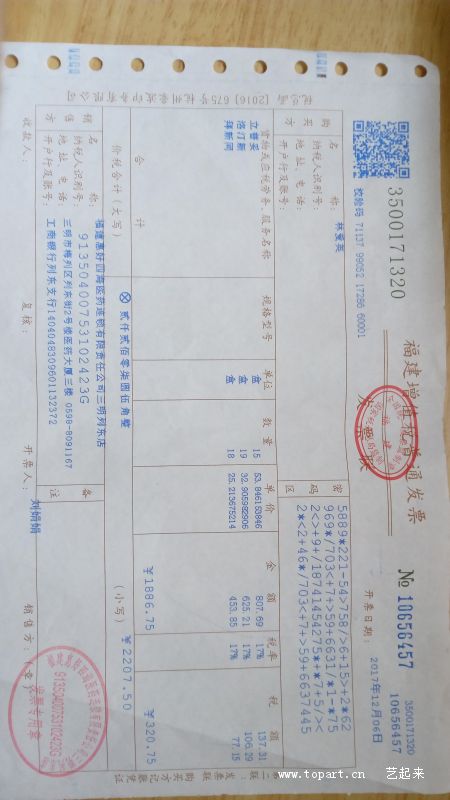 3500171320
福建增值税普通发票
发票联
№ 10656457
3500171320
10656457
校验码 71137 99052 17286 60001
开票日期: 2017年12月06日
购买方
名 称: 林爱英
纳税人识别号:
地址、电话:
开户行及账号:
密码区
5889*221-54>758/>6+15>+2*62
969*/703<+7+>59+6631/*1-*75
2<>+9+/18741454275*+*7+5/><
2*<2+46*/703<+7+>59+6637445
货物或应税劳务、服务名称 规格型号 单位 数量 单价 金额 税率 税额
立普妥 盒 15 53.846153846 807.69 17% 137.31
洛汀新 盒 19 32.905982906 625.21 17% 106.29
拜新同 盒 18 25.213675214 453.85 17% 77.15
合 计 ¥1886.75 ¥320.75
价税合计(大写) ⊗贰仟贰佰零柒圆伍角整 (小写) ¥2207.50
销售方
名 称: 福建惠好四海医药连锁有限责任公司三明列东店
纳税人识别号: 91350400753102423G
地址、电话: 三明市梅列区列东街2号楼医药大厦三楼 0598-8091167
开户行及账号: 工商银行列东支行1404048309601132372
备注
收款人: 复核: 开票人: 刘娟娟 销售方:(章)
91350400753102423G
发票专用章
第二联:发票联 购买方记账凭证
www.topart.cn 艺起来